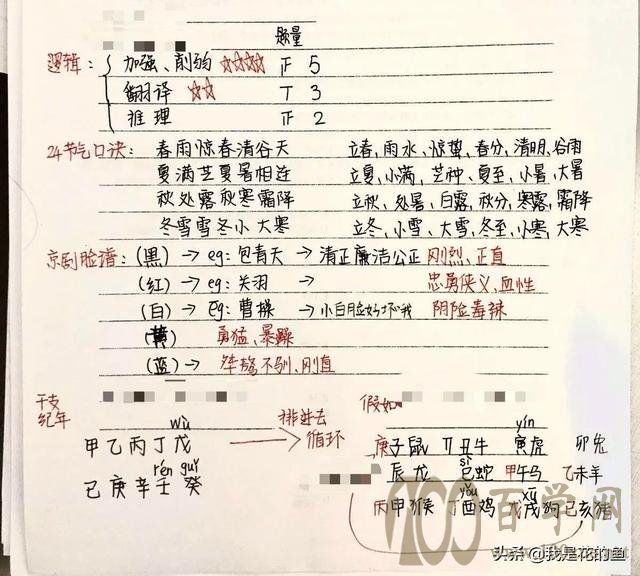 题量
逻辑： 加强、削弱 ☆☆☆☆ 正 5
翻译 ☆☆ T 3
推理 正 2
24节气口诀： 春雨惊春清谷天 立春，雨水、惊蛰、春分，清明，谷雨
夏满芒夏暑相连 立夏，小满，芒种、夏至，小暑、大暑
秋处露秋寒霜降 立秋、处暑、白露，秋分，寒露，霜降
冬雪雪冬小大寒 立冬、小雪、大雪、冬至，小寒、大寒
京剧脸谱：(黑) → eg：包青天 → 清正廉洁公正 刚烈、正直
(红) → eg：关羽 → 忠勇侠义、血性
(白) → Eg：曹操 → 小白脸奸坏 阴险毒辣
(黄) 勇猛、暴躁
(蓝) → 桀骜不驯、刚直
干支纪年
排进去循环
假如
wù
甲乙丙丁戊
rén guǐ
己庚辛壬癸
yín
庚子鼠 丑牛 寅虎 卯兔
sì
辰龙 巳蛇 甲午马 乙未羊
yǒu xū
丙申猴 丁酉鸡 戊戌狗 己亥猪
100百学网
头条 @我是花的鱼